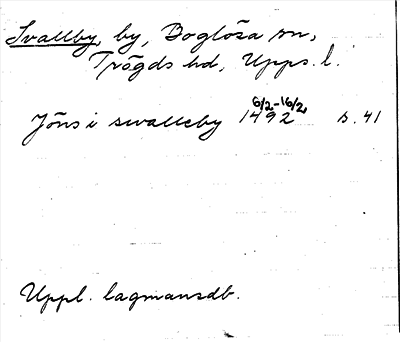 Svallby, by, Boglösa sn,
Trögds hd, Upps. l.
6/2-16/2
Jöns i swalleby 1492 s. 41
Uppl. lagmansdb.